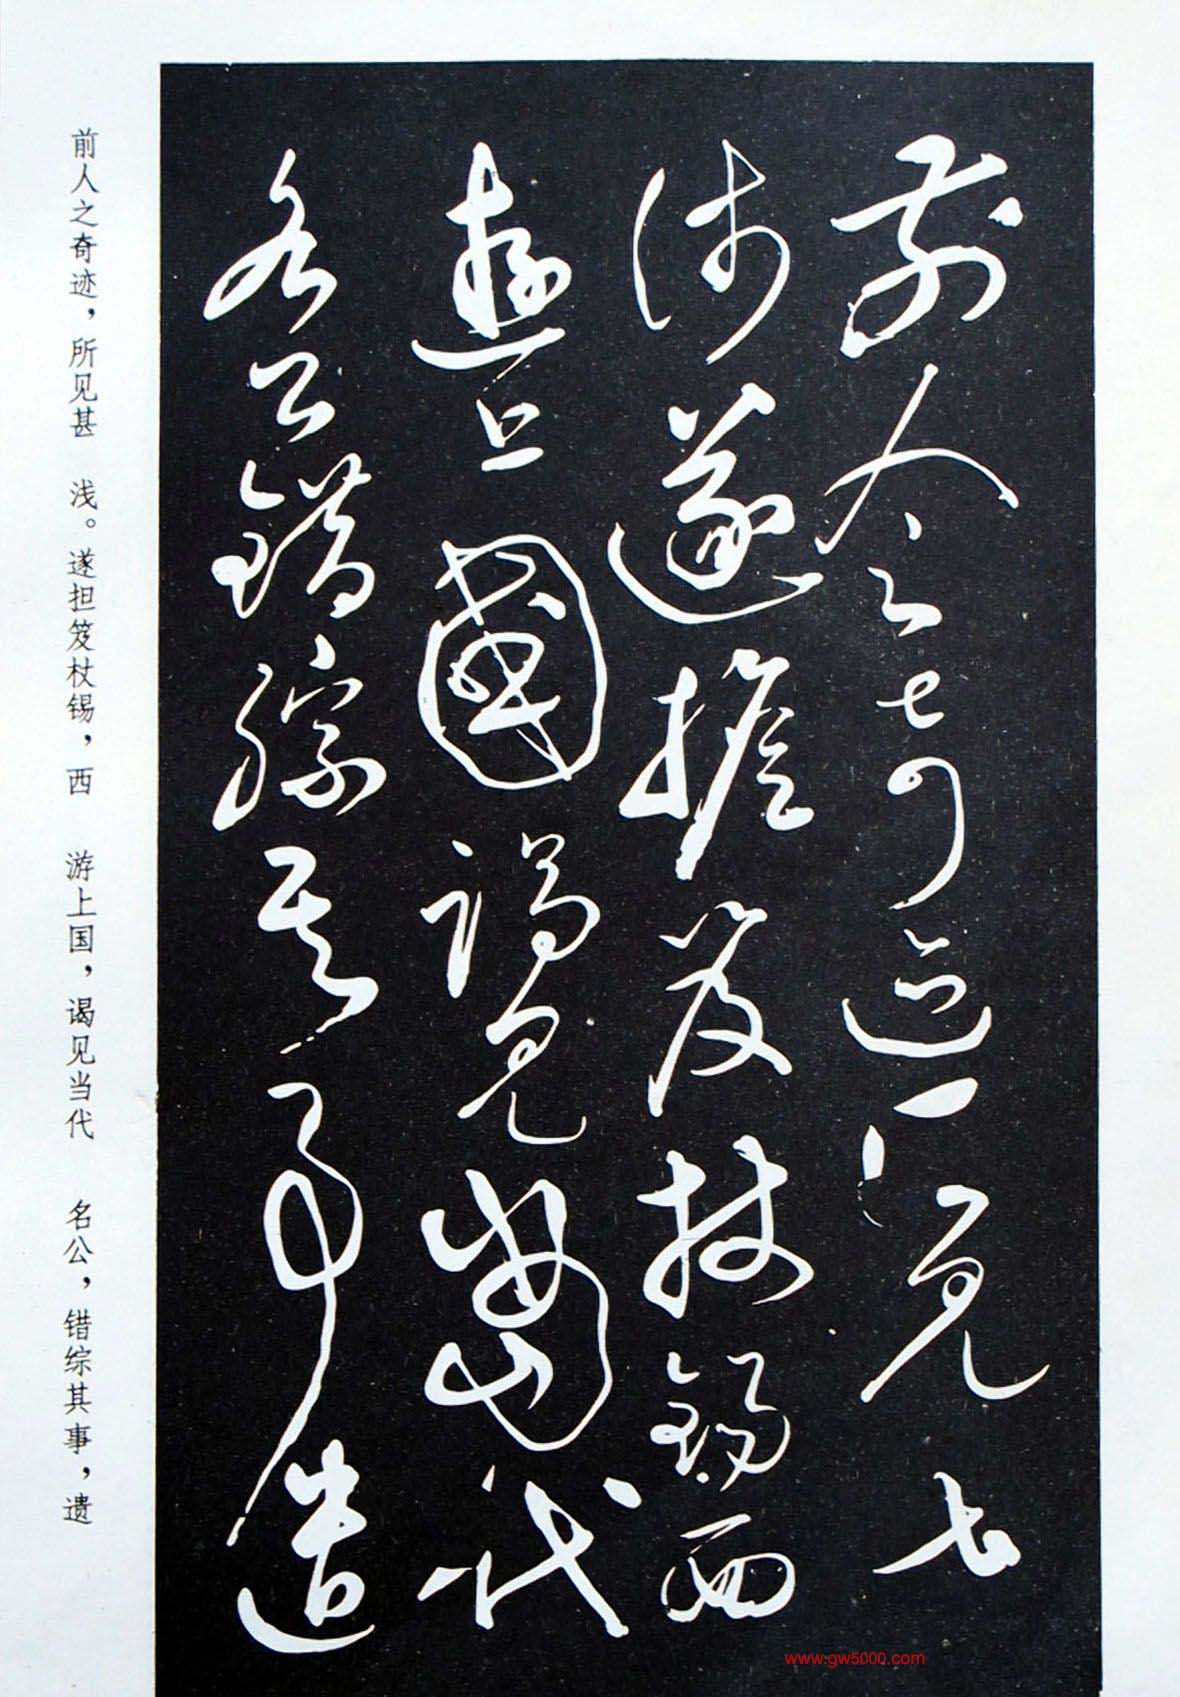 前人之奇迹所見甚
淺遂擔笈杖錫西
遊上國謁見當代
名公錯綜其事遺
前人之奇迹，所见甚 浅。遂担笈杖锡，西 游上国，谒见当代 名公，错综其事，遗
www.gw5000.com